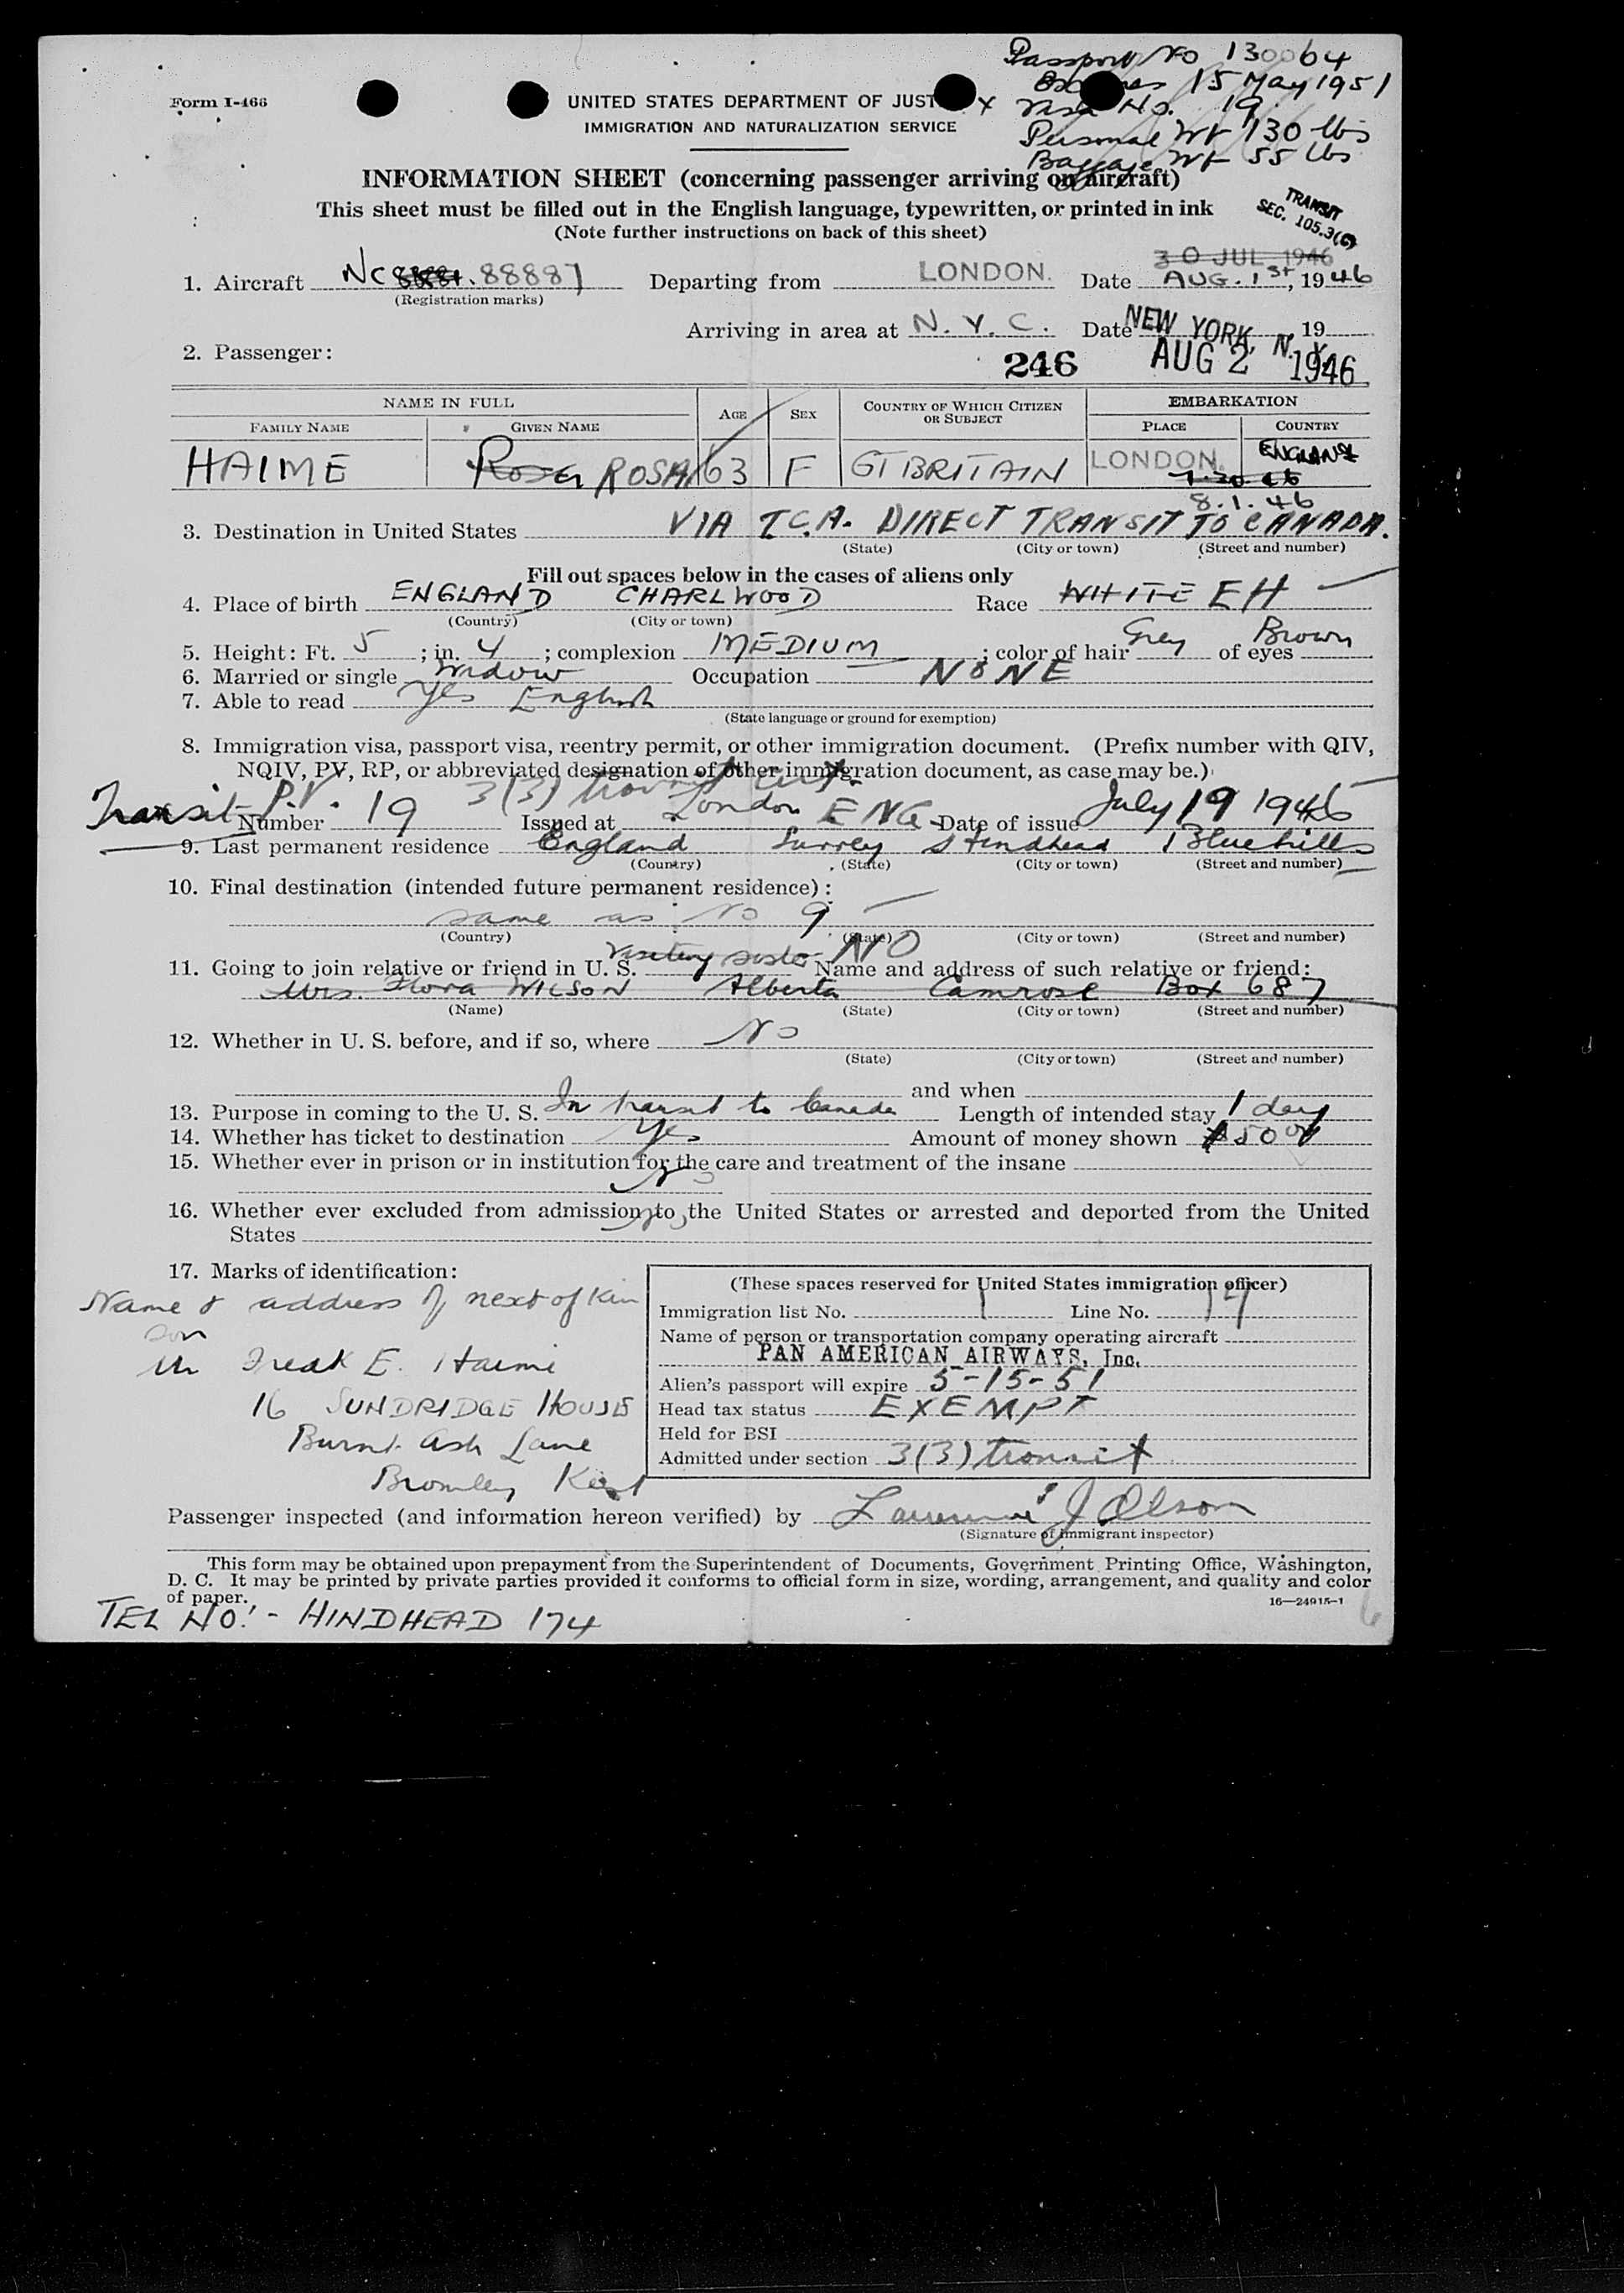 Passport No 130064
Expires 15 May 1951
Form I-466
UNITED STATES DEPARTMENT OF JUST
x Visa No. 19.
IMMIGRATION AND NATURALIZATION SERVICE
Personal Wt 130 lbs
Baggage Wt 55 lbs
INFORMATION SHEET (concerning passenger arriving on aircraft)
This sheet must be filled out in the English language, typewritten, or printed in ink
(Note further instructions on back of this sheet)
TRANSIT
SEC. 105.3(G)
30 JUL 1946
1. Aircraft NC 88887 Departing from LONDON. Date AUG. 1st, 1946
(Registration marks)
Arriving in area at N.Y.C. Date 19
NEW YORK, N. Y.
2. Passenger:
246 AUG 2 1946
NAME IN FULL AGE SEX COUNTRY OF WHICH CITIZEN OR SUBJECT EMBARKATION
FAMILY NAME GIVEN NAME PLACE COUNTRY
HAIME Rosa ROSA 63 F GT BRITAIN LONDON. ENGLAND
7.30.46
8.1.46
3. Destination in United States VIA T.C.A. DIRECT TRANSIT TO CANADA.
(State) (City or town) (Street and number)
Fill out spaces below in the cases of aliens only
4. Place of birth ENGLAND CHARLWOOD Race WHITE EH
(Country) (City or town)
5. Height: Ft. 5; in. 4; complexion MEDIUM; color of hair Grey of eyes Brown
6. Married or single Widow Occupation NONE
7. Able to read Yes English
(State language or ground for exemption)
8. Immigration visa, passport visa, reentry permit, or other immigration document. (Prefix number with QIV,
NQIV, PV, RP, or abbreviated designation of other immigration document, as case may be.)
3(3) transit cert.
Transit P.V.
Number 19 Issued at London ENG. Date of issue July 19 1946
9. Last permanent residence England Surrey Hindhead 1 Bluehills
(Country) (State) (City or town) (Street and number)
10. Final destination (intended future permanent residence):
same as No 9
(Country) (State) (City or town) (Street and number)
11. Going to join relative or friend in U. S. Visiting sister NO Name and address of such relative or friend:
Mrs. Flora WILSON Alberta Camrose Box 687
(Name) (State) (City or town) (Street and number)
12. Whether in U. S. before, and if so, where No
(State) (City or town) (Street and number)
and when
13. Purpose in coming to the U. S. In transit to Canada Length of intended stay 1 day
14. Whether has ticket to destination Yes Amount of money shown $50 00
15. Whether ever in prison or in institution for the care and treatment of the insane
No
16. Whether ever excluded from admission to the United States or arrested and deported from the United
States No
17. Marks of identification:
Name & address of next of kin
son
Mr Fredk E. Haime
16 SUNDRIDGE HOUSE
Burnt Ash Lane
Bromley Kent
(These spaces reserved for United States immigration officer)
Immigration list No. 1 Line No. 14
Name of person or transportation company operating aircraft
PAN AMERICAN AIRWAYS, Inc.
Alien's passport will expire 5-15-51
Head tax status EXEMPT
Held for BSI
Admitted under section 3(3) transit
Passenger inspected (and information hereon verified) by J Olson
(Signature of immigrant inspector)
This form may be obtained upon prepayment from the Superintendent of Documents, Government Printing Office, Washington,
D. C. It may be printed by private parties provided it conforms to official form in size, wording, arrangement, and quality and color
of paper.
16—24915-1
TEL NO:- HINDHEAD 174
6